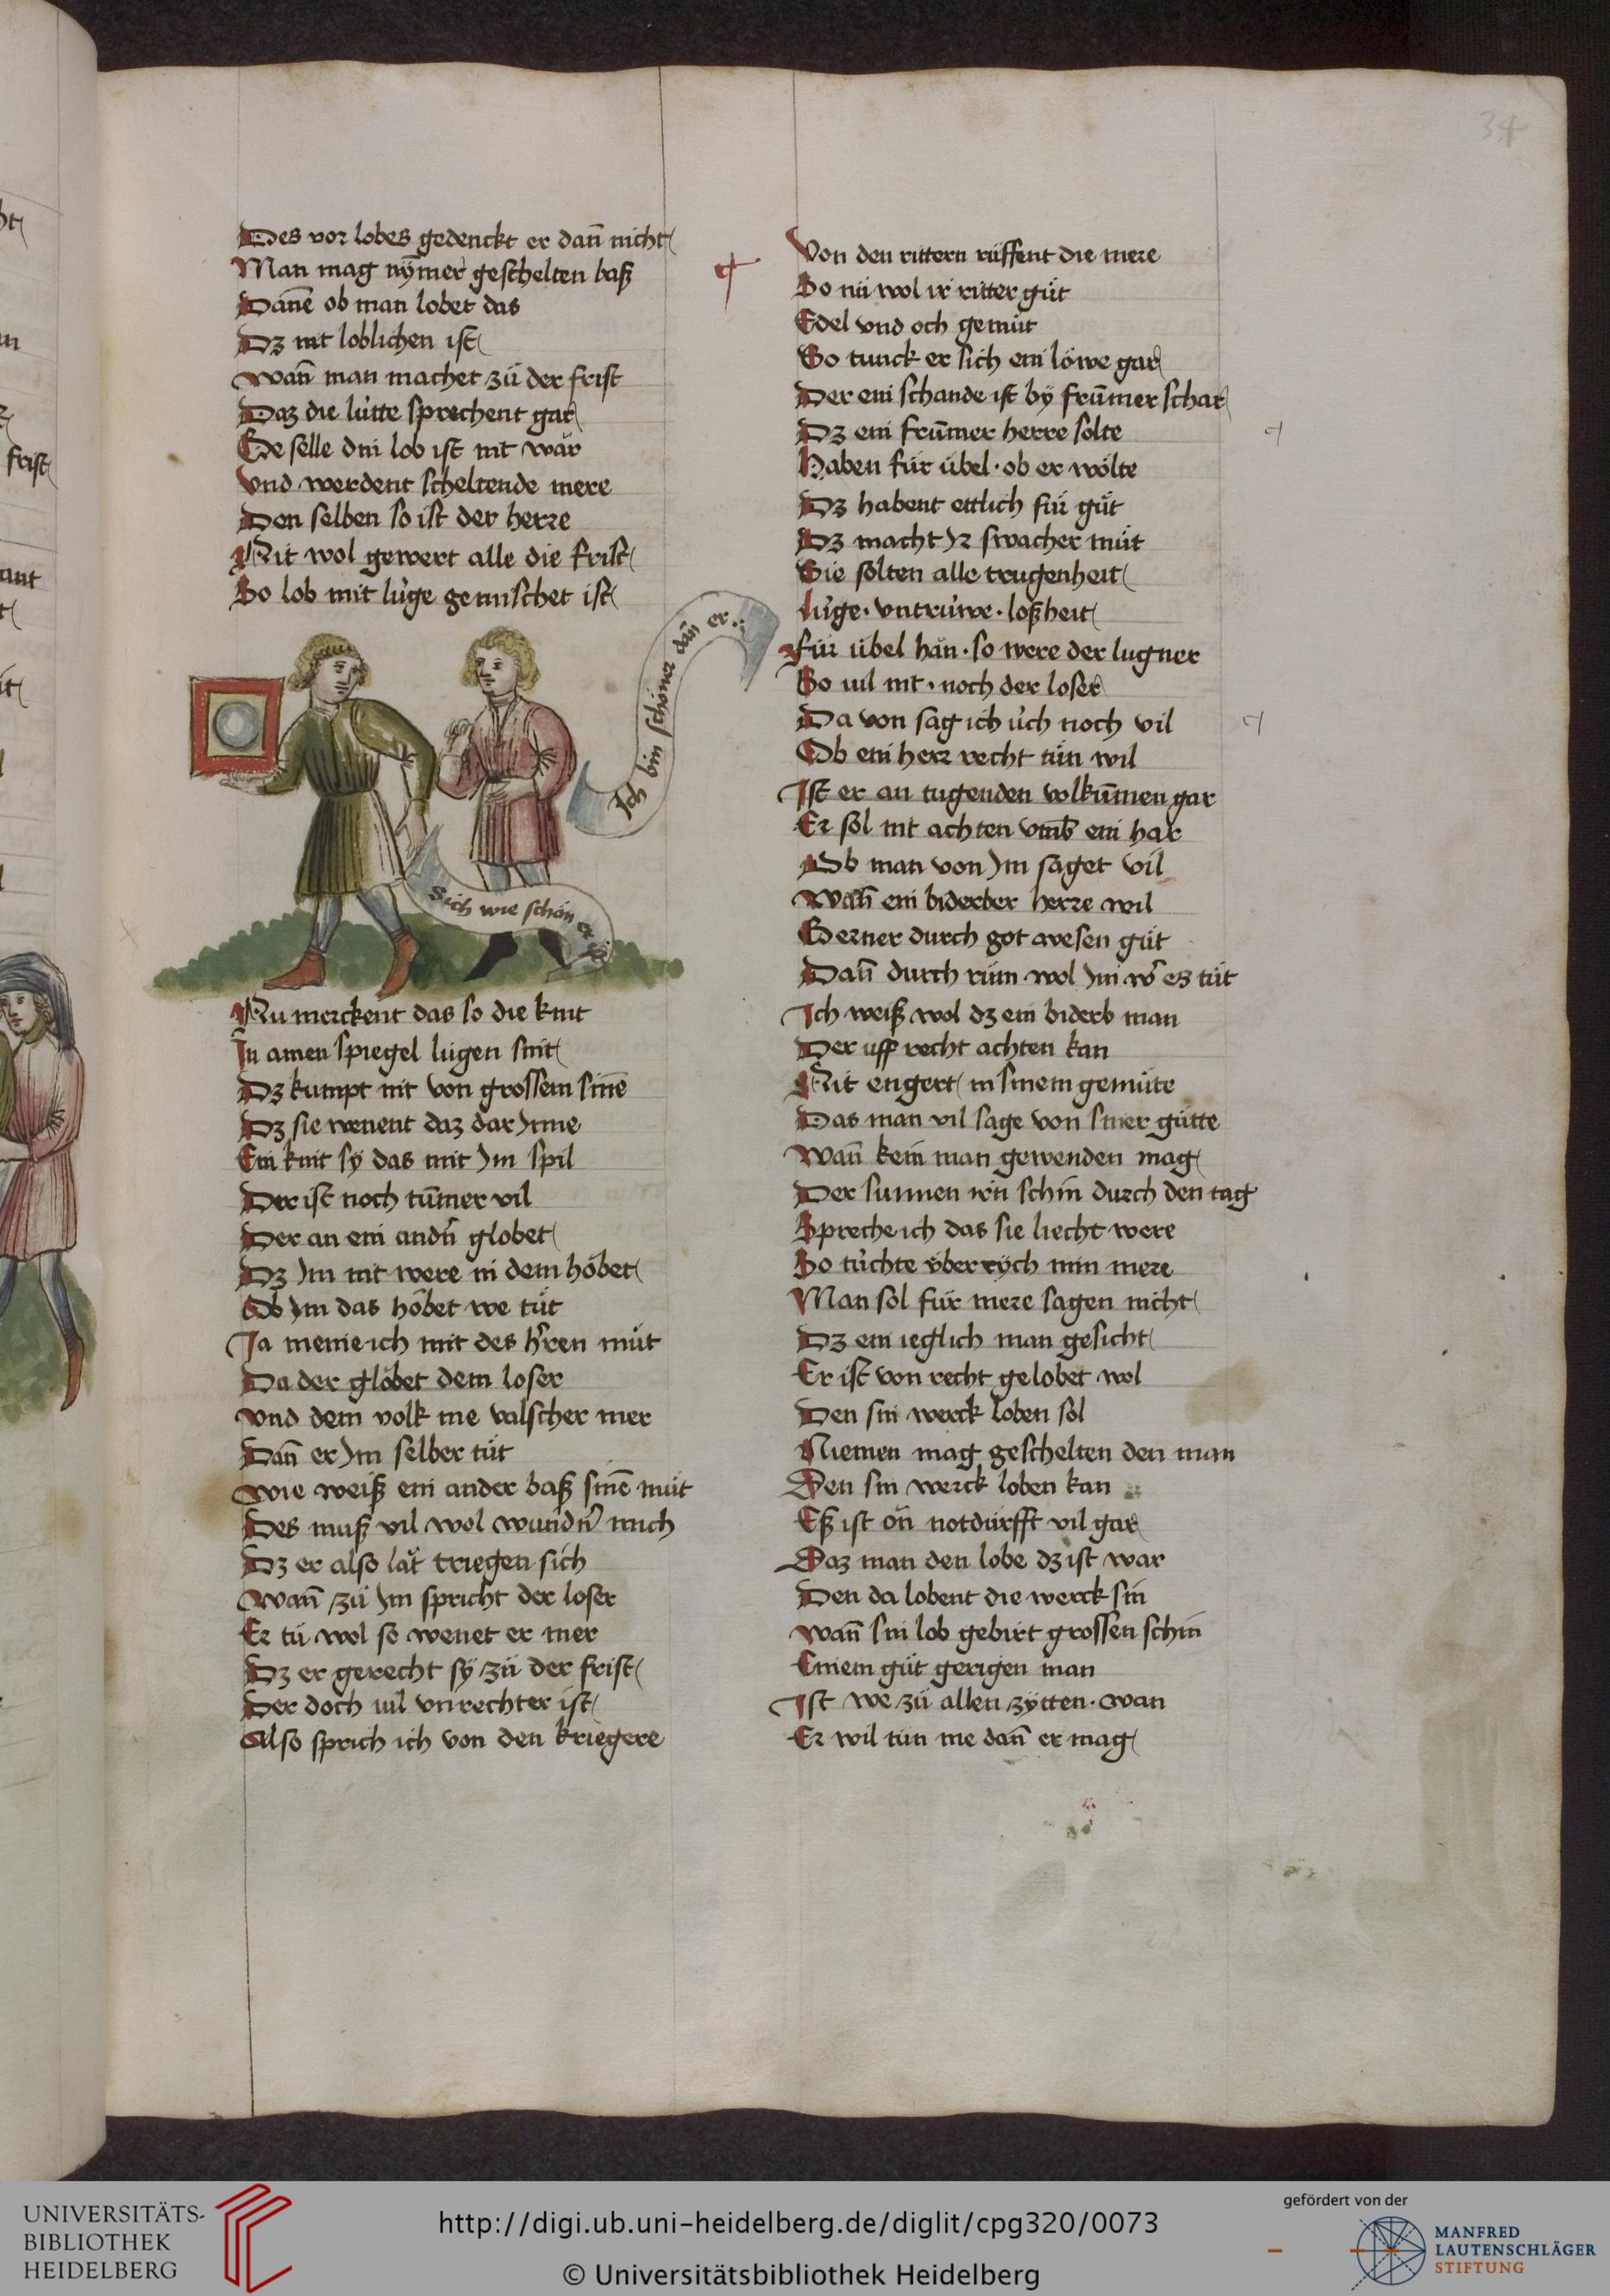 34
Des vor lobes gedenckt er dan̄ nicht
Man mag nȳmer geschelten baß
Dan̄e ob man lobet das
Dz nit loblichen ist
Wan̄ man machet zů der frist
Daz die lu̍tte sprechent gar
Geselle din lob ist nit war
Vnd werdent scheltende mere
Den selben so ist der herre
Nit wol gewert alle die frist
So lob mit lu̍ge gemischet ist
Ich bin schöner dan̄ er
Sich wie schön er
Nu merckent das so die kint
In amen spiegel lůgen sint
Dz kumpt nit von grossem sin̄e
Dz sie wenent daz dar Inne
Ein kint sÿ das mit Im spil
Der ist noch tūmer vil
Der an ein andn̄ globet
Dz Im nit were in dem höbet
Ob Im das höbet we tůt
Ja meine ich mit des h̄ren můt
Da der glöbet dem loser
Vnd dem volk me valscher mer
Dan̄ er Im selber tůt
Wie weiß ein ander baß sin̄e můt
Des muß vil wol wundn̄ mich
Dz er also lät triegen sich
Wan̄ zů Im spricht der loser
Er tů wol so wenet er mer
Dz er gerecht sÿ zů der frist
Der doch vil vnrechter ist
Also sprich ich von den kriegere
Von den rittern rüffent die mere
So nů wol ir ritter gůt
Edel vnd och gemůt
So tunck er sich ein löwe gar
Der ein schande ist bÿ frūmer schar
Dz ein frūmer herre solte
Haben für übel · ob er wölte
Dz habent ettlich für gůt
Dz macht Ir swacher můt
Sie solten alle trugenheit
Lu̍ge · vntru̍we · loßheit
Für übel hän · so were der lugner
So vil nit · noch der loser
Da von sag ich u̍ch noch vil
Ob ein herr recht tůn wil
Ist er an tugenden volkūmen gar
Er sol nit achten vmb ein har
Ob man von Im saget vil
Wan̄ ein biderber herre wil
Gerner durch got wesen gůt
Dan̄ durch rům wol Im w̄ es tůt
Ich weiß wol dz ein biderb man
Der uff recht achten kan
Nit engert in sinem gemüte
Das man vil sage von siner gütte
Wan̄ kein man gewenden mag
Der sunnen irn schin durch den tag
Spreche ich das sie liecht were
So tu̍chte überrÿch min mere
Man sol für mere sagen nicht
Dz ein ieglich man gesicht
Er ist von recht gelobet wol
Den sin werck loben sol
Niemen mag geschelten den man
Den sin werck loben kan
Eß ist ön notdurfft vil gar
Daz man den lobe dz ist war
Den da lobent die werck sin
Wan̄ sin lob gebirt grossen schin
Einem gůt gerigen man
Ist we zů allen zÿtten · wan
Er wil tůn me dan̄ er mag
UNIVERSITÄTS-
BIBLIOTHEK
HEIDELBERG
http://digi.ub.uni-heidelberg.de/diglit/cpg320/0073
© Universitätsbibliothek Heidelberg
gefördert von der
MANFRED
LAUTENSCHLÄGER
STIFTUNG